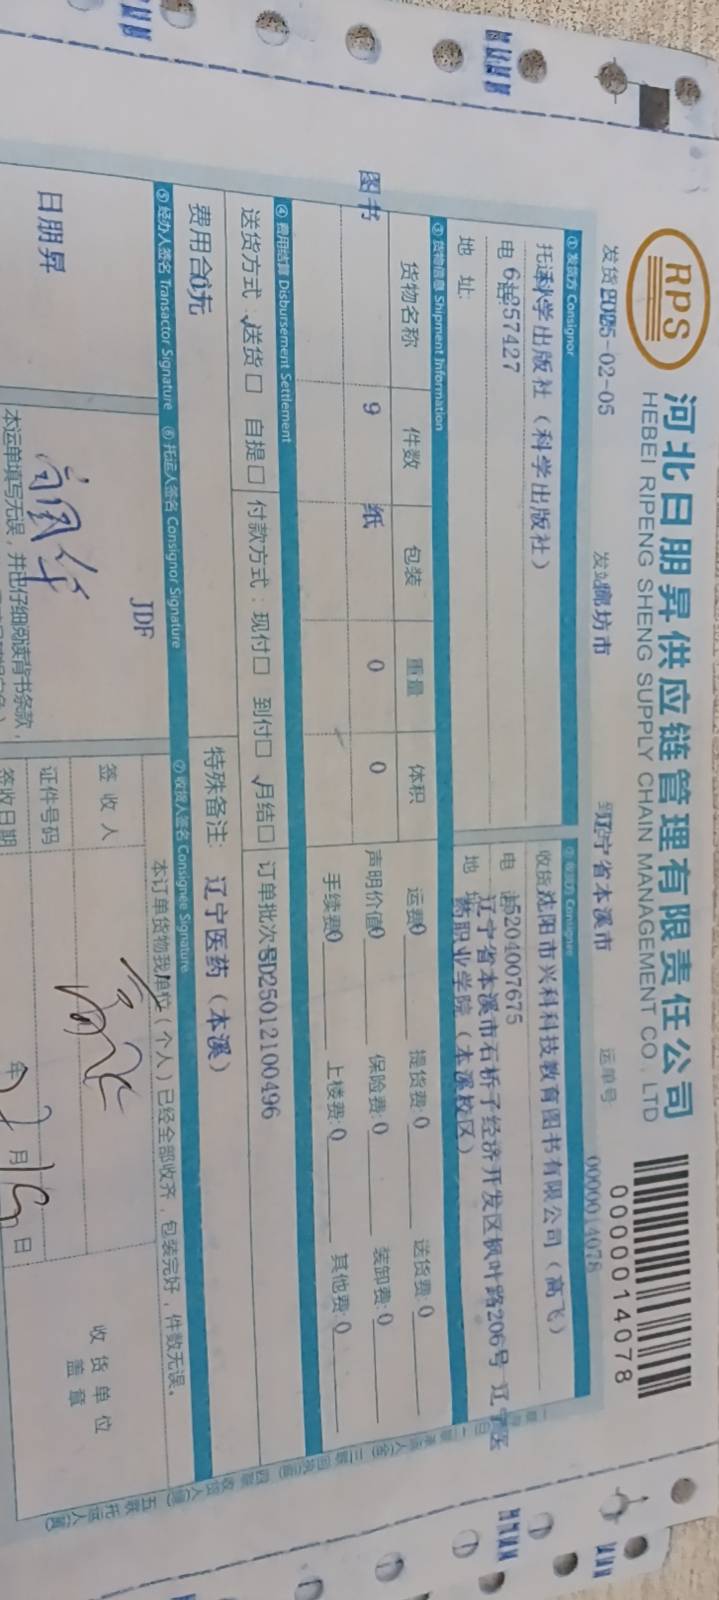 RPS
河北日朋昇供应链管理有限责任公司
HEBEI RIPENG SHENG SUPPLY CHAIN MANAGEMENT CO., LTD
0000014078
发货日期 2025-02-05 发站 廊坊市 到站 辽宁省本溪市 运单号: 0000014078
① 发货方 Consignor
托运 科学出版社（科学出版社）
电话 61257427
地 址:
② 收货方 Consignee
收货 沈阳市兴科科技教育图书有限公司（高飞）
电 话 15204007675
地 址 辽宁省本溪市石桥子经济开发区枫叶路206号 辽宁医
药职业学院（本溪校区）
③ 货物信息 Shipment Information
货物名称 件数 包装 重量 体积
图书 9 纸 0 0
运费 0 提货费: 0 送货费: 0
声明价值 0 保险费: 0 装卸费: 0
手续费 0 上楼费: 0 其他费: 0
④ 费用结算 Disbursement Settlement
送货方式: √送货□ 自提□ 付款方式: 现付□ 到付□ √月结□ 订单批次号 SD25012100496
费用合 0元
特殊备注: 辽宁医药（本溪）
⑤ 经办人签名 Transactor Signature ⑥ 托运人签名 Consignor Signature ⑦ 收货人签名 Consignee Signature
日朋昇
JDF
本运单填写无误，并已仔细阅读背书条款，
本订单货物我单位（个人）已经全部收齐，包装完好，件数无误。
签 收 人
证件号码
签收日期 年 2 月 15 日
收 货 单 位
盖 章